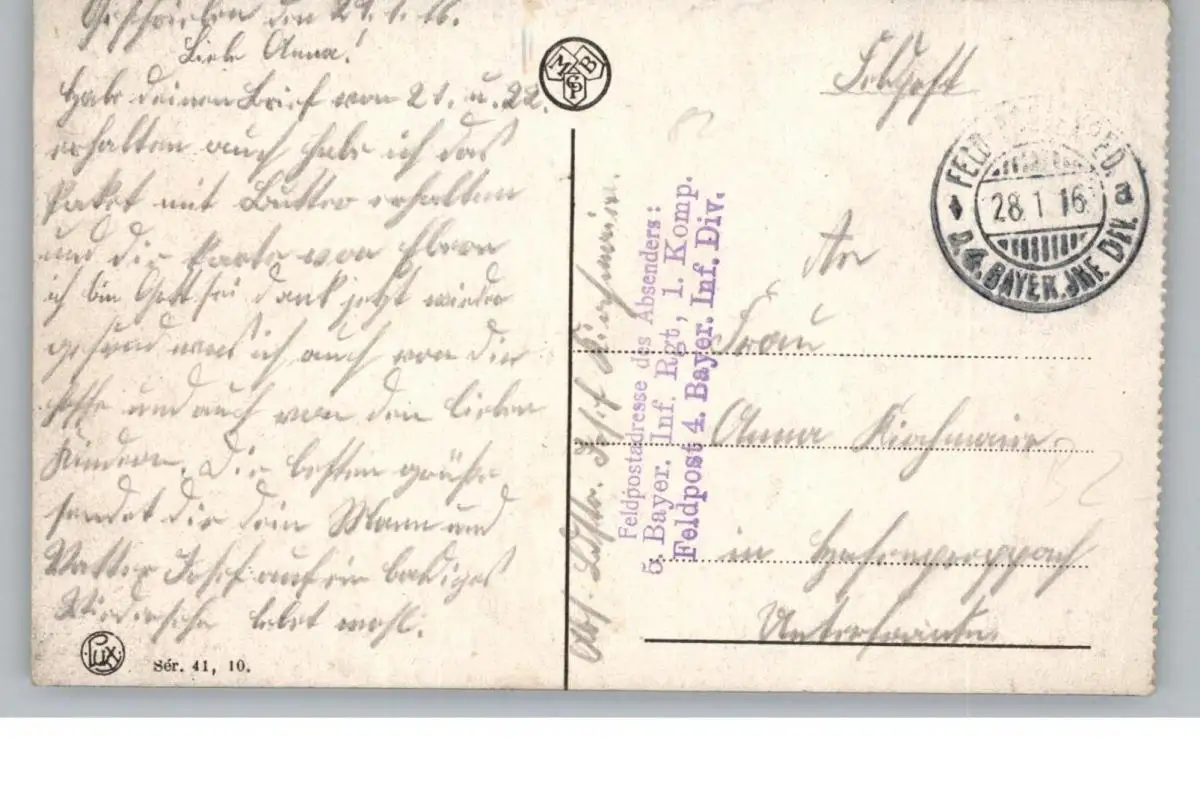 Geschrieben den 29.1.16.
Liebe Anna!
Habe deinen Brief von 21. u. 22.
erhalten auch habe ich das
Paket mit Butter erhalten
und die Karte von Ebern
ich bin Gott sei dank jetzt wieder
gesund was ich auch von dir
hoffe und auch von den lieben
Kindern. Die besten grüße
sendet dir dein Mann und
Vatter Josef auf ein baldiges
Wiedersehe lebet wohl.
Lux
Sér. 41, 10.
M B
Feldpost
FELD KGL. D. 4. BAYER. INF. DIV. a
28.1.16
Feldpostadresse des Absenders:
5. Bayer. Inf. Rgt, 1. Komp.
Feldpost 4. Bayer. Inf. Div.
Abs. Josef Kirchmaier.
An
Frau
Anna Kirchmaier
in
Unterfranken